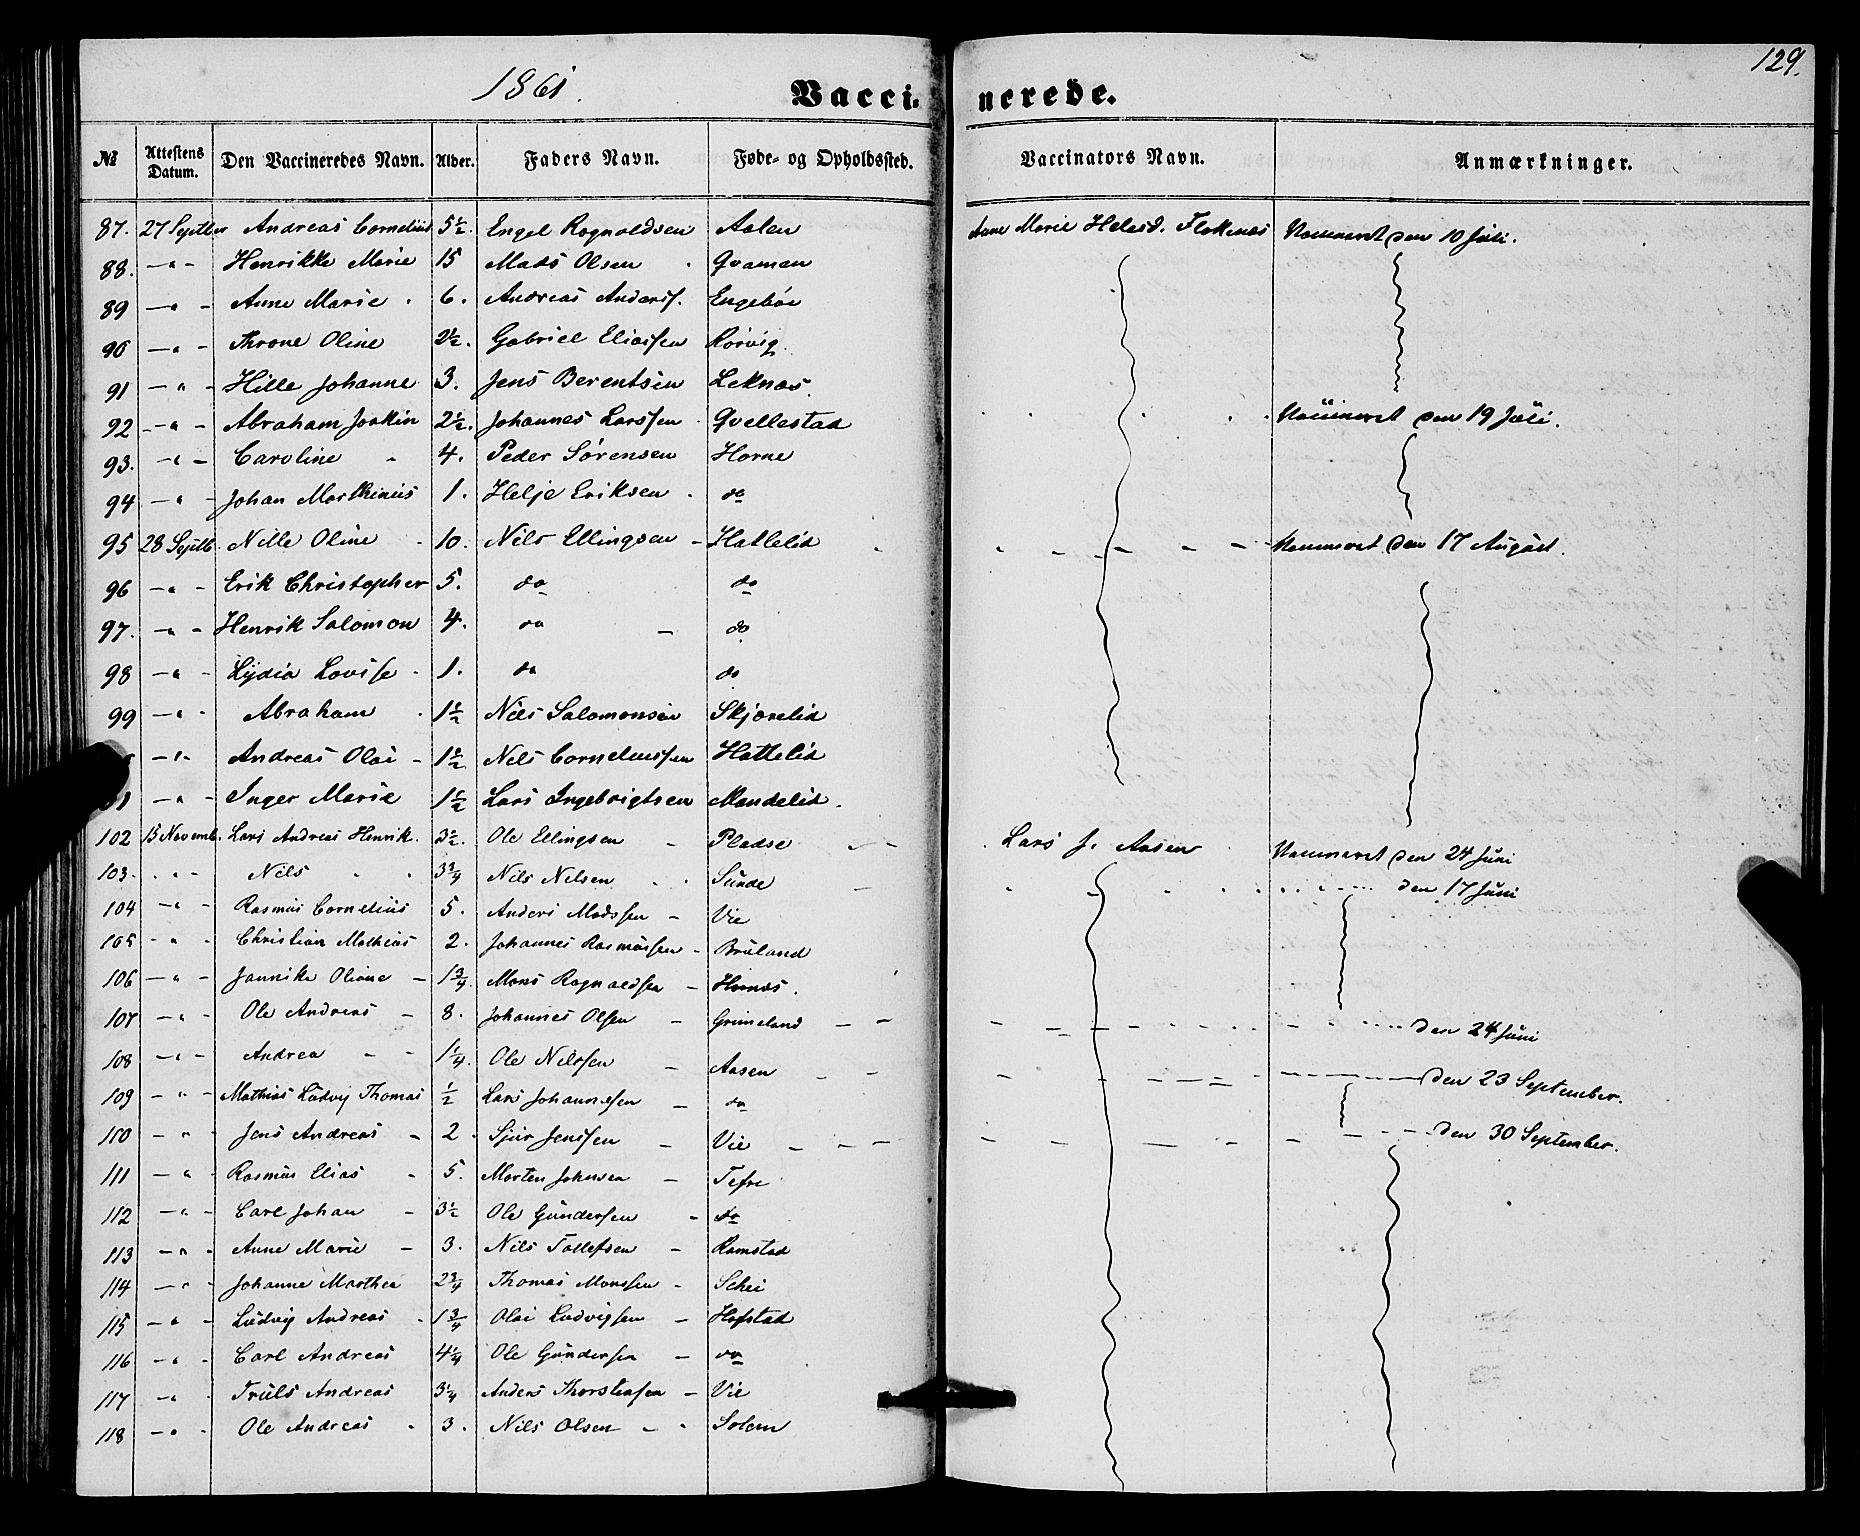 129.
1861.
Vaccinerede.
№ Attestens Datum. Den Vaccineredes Navn. Alder. Faders Navn. Føde- og Opholdssted. Vaccinators Navn. Anmærkninger.
87. 27 Septbr Andreas Cornelius 5½ Engel Ragnoldsen Aalen Anne Marie Helesd. Flokenæs Vaccineret den 10 Juli.
88. — " - Henrikke Marie 15 Mads Olsen Qvamen
89 — " - Anne Marie 6. Andreas Anders. Engebøe
90 — " - Throne Oline 2½. Gabriel Eliassen Rørvig
91 — " - Hille Johanne 3. Jens Berentsen Leknæs
92 — " - Abraham Joakin 2½. Johannes Larssen Qvellestad Vaccineret den 19 Juli.
93. — " - Caroline 4. Peder Sørensen Horne
94 — " - Johan Marthinus 1. Helje Eriksen do
95 28 Septb. Nille Oline 10. Nils Ellingsen - Hatlelid Vaccineret den 17 August.
96 — " - Erik Christopher 5. do do
97. — " - Henrik Salomon 4. do — do
98 — " - Lydia Lovise 1. do do
99 — " - Abraham 1½ Nils Salomonsen Skjorelid
— " - Andreas Olai - 1½ Nils Corneliussen Hattelid
— " - Inger Marie 1½ Lars Ingebrigtsen Mandelid.
102 13 Novemb. Lars Andreas Henrik. 3½. Ole Ellingsen - Pladse Lars J. Aasen Vaccineret den 24 Juni
103. - " - Nils 3¾ Nils Nilsen Sunde den 17 Juni
104 — " - Rasmus Cornelius 5. Anders Madssen - Vie
105 - " - Christian Mathias 2. Johannes Rasmussen - Bruland
106 — " - Jannike Oline - 1¾. Mons Ragnoldsen - Hornæs.
107 — " - Ole Andreas - 8. Johannes Olsen - Grimeland den 24 Juni
108 — " - Andrea 1¼. Ole Nilssen - Aasen
109 - " - Mathias Ludvig Thomas ½ Lars Johannessen - do den 23 September.
110 — " - Jens Andreas - 2 Sjur Jenssen - Vie den 30 September.
111 — " - Rasmus Elias - 5. Morten Johnsen - Tefre
112 — " - Carl Johan - 3½ Ole Gundersen - do
113 — " - Anne Marie - 3. Nils Tollefsen - Ramstad
114 — " - Johanne Marthea 2¾ Thomas Monssen - Schei
115 — " - Ludvig Andreas - 1¾ Olai Ludvigsen - Hafstad
116 — " - Carl Andreas 4¼ Ole Gundersen - do
117 — " - Truls Andreas 3¼ Anders Thorstensen - Vie
118 — " - Ole Andreas - 3. Nils Olsen - Solem